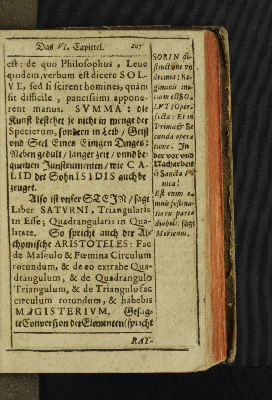 Das VI. Capittel.
est: de quo Philosophus, Leve
quidem, verbum est dicere SOL-
VE, sed si scirent homines, quam
sit difficile, paucissimi appone-
rent manus. SVMMA: die
Kunst bestehet je nicht in menge der
Specierum, sondern in Leib / Geist
vnd Seel Eines Einigen Dinges:
Neben gedult / langer zeit / vnnd be-
quemen Junstrumenten / wie CA-
LID der Sohn ISIDIS auch be
zeuget.
Also ist vnser STEIN / sagt
Liber SATVRNI, Triangularis
in Esse, Quadrangularis in Qua-
litate. So spricht auch der Al-
chymische ARISTOTELES: Fac
de Masculo & Fœmina Circulum
rotundum, & de eo extrahe Qua-
drangulum, & de Quadrangulo
Triangulum, & de Triangulo fac
circulum rotundum, & habebis
MAGISTERIVM. Gesag-
te Conversion der Elementen / spricht
RAY-
SORIN di-
stinctione
decima: Re-
giminis ini-
LVT
Prima & Se-
cunda opera
tione. In
der vor vnd
Nacharbeit
ô Sancta
nica!
Est enim o-
mnis
tio ex parte
diaboli: sagt
Morienus.